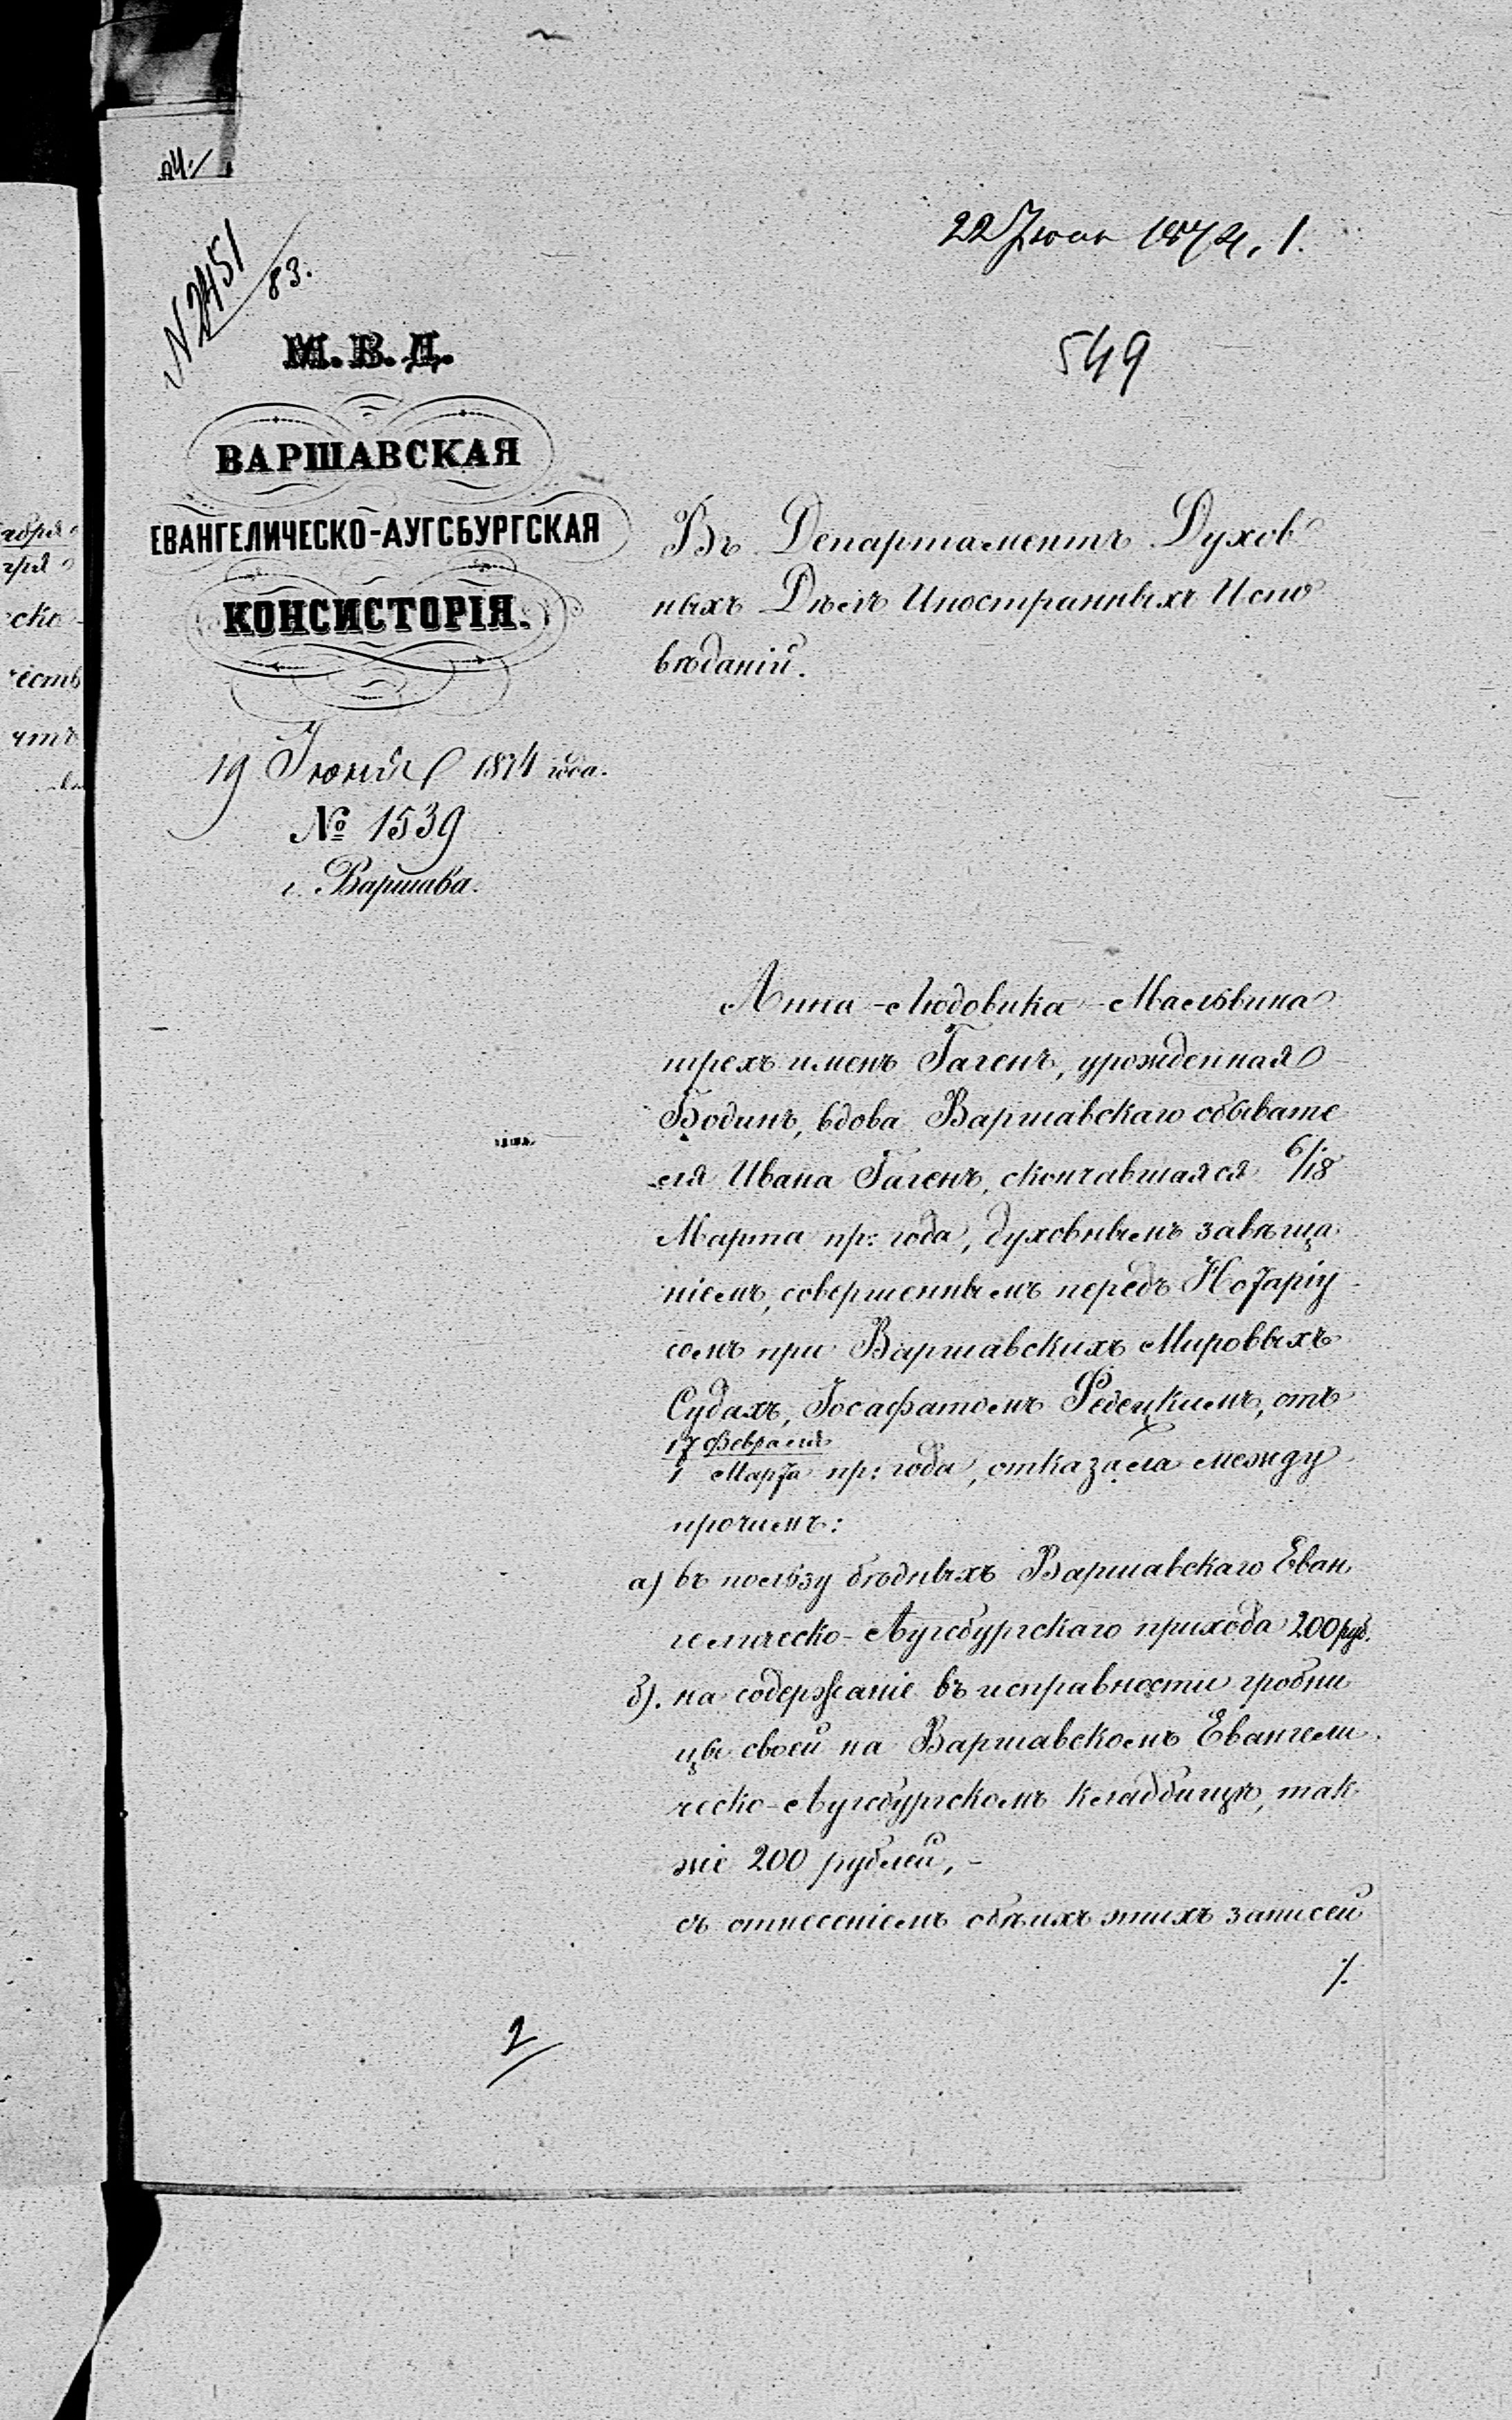 № 2451/83.
22 Июня 1874. 1.
549
М. В. Д.
ВАРШАВСКАЯ
ЕВАНГЕЛИЧЕСКО-АУГСБУРГСКАЯ
КОНСИСТОРІЯ.
19 Іюня 1874 года.
№ 1539
г. Варшава.
Въ Департаментъ Духов
ныхъ Дѣлъ Иностранныхъ Испо
вѣданій.
Анна-Людовика-Мальвина
трехъ именъ Гагенъ, урожденная
Бодинъ, вдова Варшавскаго обывате
ля Ивана Гагенъ, скончавшаяся 6/18
Марта пр: года, духовнымъ завѣща
ніемъ, совершеннымъ передъ Нотаріу
сомъ при Варшавскихъ Мировыхъ
Судахъ, Іосафатомъ Федецкимъ, отъ
17 Февраля
1 Марта пр: года, отказала между
прочимъ:
а) въ пользу бѣдныхъ Варшавскаго Еван
гелическо-Аугсбургскаго прихода 200 руб.
б). на содержаніе въ исправности гробни
цы своей на Варшавскомъ Евангели
ческо-Аугсбургскомъ кладбищѣ, так
же 200 рублей, -
съ отнесеніемъ обѣихъ этихъ записей
./.
2